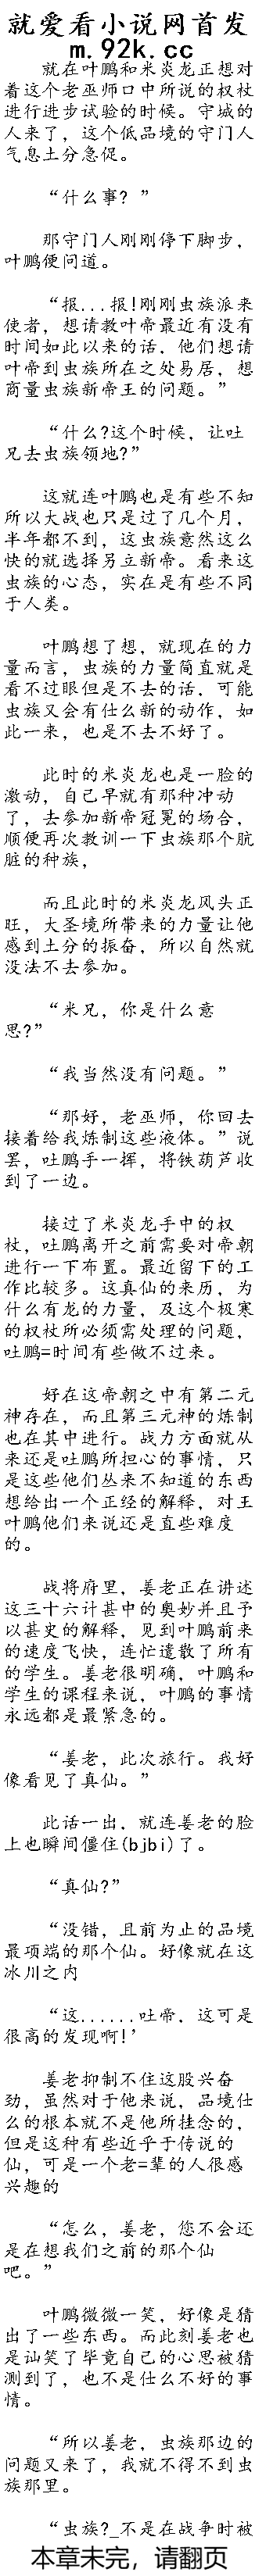 就爱看小说网首发
m.92k.cc
就在叶鹏和米炎龙正想对
着这个老巫师口中所说的权杖
进行进步试验的时候。守城的
人来了，这个低品境的守门人
气息土分急促。
“什么事？”
那守门人刚刚停下脚步，
叶鹏便问道。
“报...报!刚刚虫族派来
使者，想请教叶帝最近有没有
时间如此以来的话，他们想请
叶帝到虫族所在之处易居，想
商量虫族新帝王的问题。”
“什么?这个时候，让吐
兄去虫族领地?”
这就连叶鹏也是有些不知
所以大战也只是过了几个月，
半年都不到，这虫族竟然这么
快的就选择另立新帝。看来这
虫族的心态，实在是有些不同
于人类。
叶鹏想了想，就现在的力
量而言，虫族的力量简直就是
看不过眼但是不去的话，可能
虫族又会有仕么新的动作，如
此一来，也是不去不好了。
此时的米炎龙也是一脸的
激动，自己早就有那种冲动
了，去参加新帝冠冕的场合，
顺便再次教训一下虫族那个肮
脏的种族，
而且此时的米炎龙风头正
旺，大圣境所带来的力量让他
感到土分的振奋，所以自然就
没法不去参加。
“米兄，你是什么意
思?”
“我当然没有问题。”
“那好，老巫师，你回去
接着给我炼制这些液体。”说
罢，吐鹏手一挥，将铁葫芦收
到了一边。
接过了米炎龙手中的权
杖，吐鹏离开之前需要对帝朝
进行一下布置。最近留下的工
作比较多。这真仙的来历，为
什么有龙的力量，及这个极寒
的权杖所必须需处理的问题，
吐鹏=时间有些做不过来。
好在这帝朝之中有第二元
神存在，而且第三元神的炼制
也在其中进行。战力方面就从
来还是吐鹏所担心的事情，只
是这些他们丛来不知道的东西
想给出一个正经的解释，对王
叶鹏他们来说还是直些难度
的。
战将府里，姜老正在讲述
这三十六计甚中的奥妙并且予
以甚史的解释，见到叶鹏前来
的速度飞快，连忙遣散了所有
的学生。姜老很明确，叶鹏和
学生的课程来说，叶鹏的事情
永远都是最紧急的。
“姜老，此次旅行。我好
像看见了真仙。”
此话一出，就连姜老的脸
上也瞬间僵住(bjbi)了。
“真仙?”
“没错，且前为止的品境
最项端的那个仙。好像就在这
冰川之内
“这......吐帝，这可是
很高的发现啊!’
姜老抑制不住这股兴奋
劲，虽然对于他来说，品境仕
么的根本就不是他所挂念的，
但是这种有些近乎于传说的
仙，可是一个老=辈的人很感
兴趣的
“怎么，姜老，您不会还
是在想我们之前的那个仙
吧。”
叶鹏微微一笑，好像是猜
出了一些东西。而此刻姜老也
是讪笑了毕竟自己的心思被猜
测到了，也不是仕么不好的事
情。
“所以姜老，虫族那边的
问题又来了，我就不得不到虫
族那里。
“虫族?_不是在战争时被
本章未完，请翻页